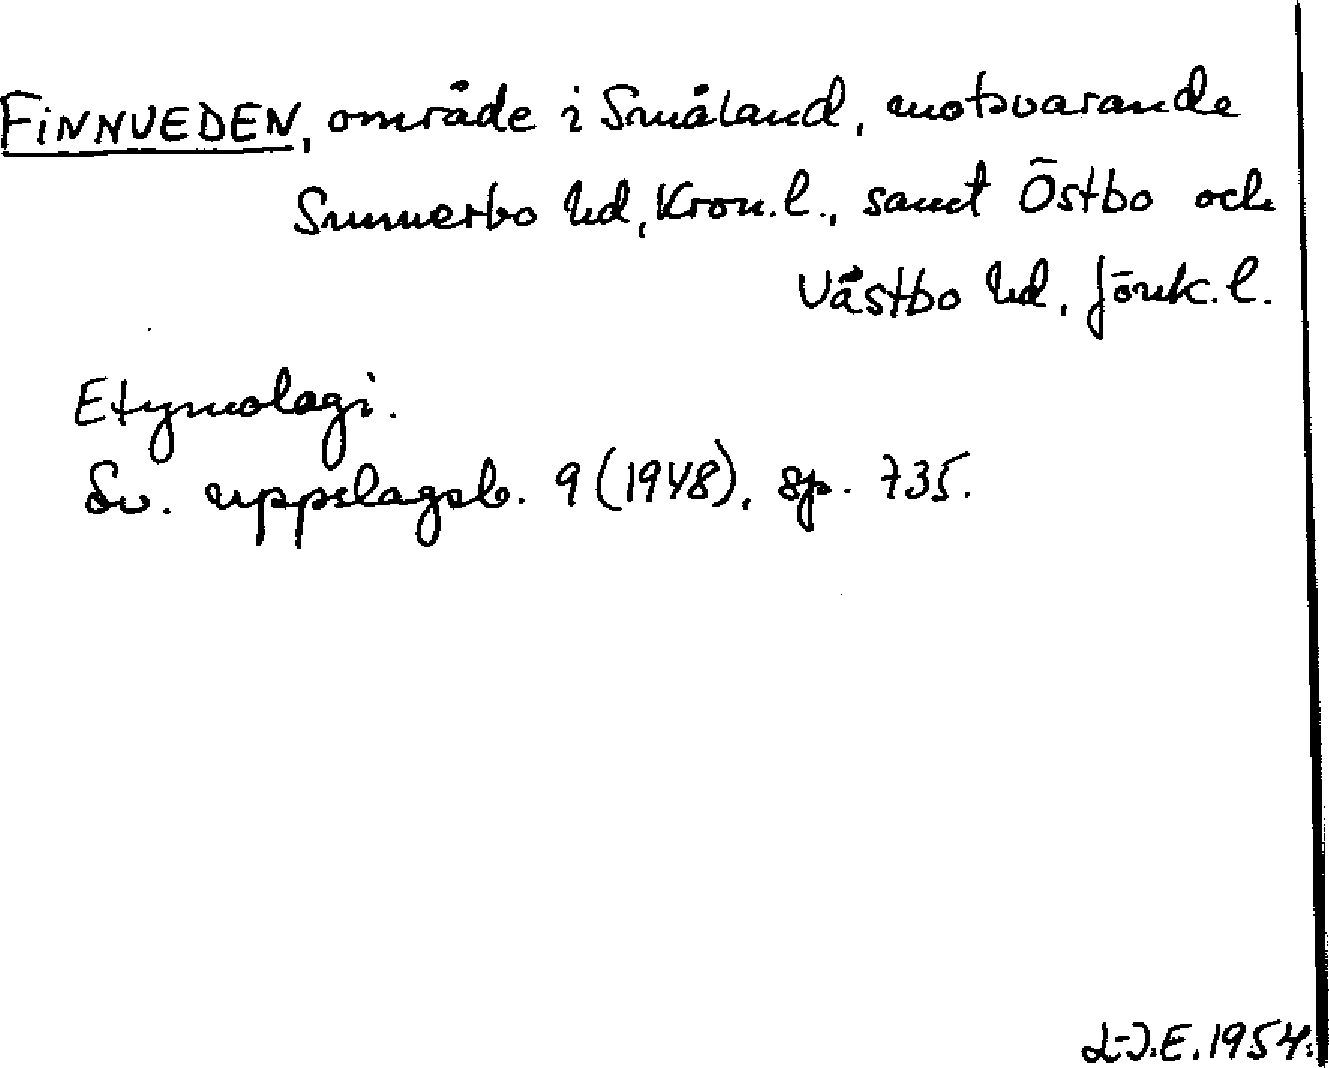 FINNVEDEN, område i Småland, motsvarande
Sunnerbo hd, Kron. l., samt Östbo och
Västbo hd, Jönk. l.
Etymologi.
Sv. uppslagsb. 9 (1948), sp. 735.
L-J.E. 1954.